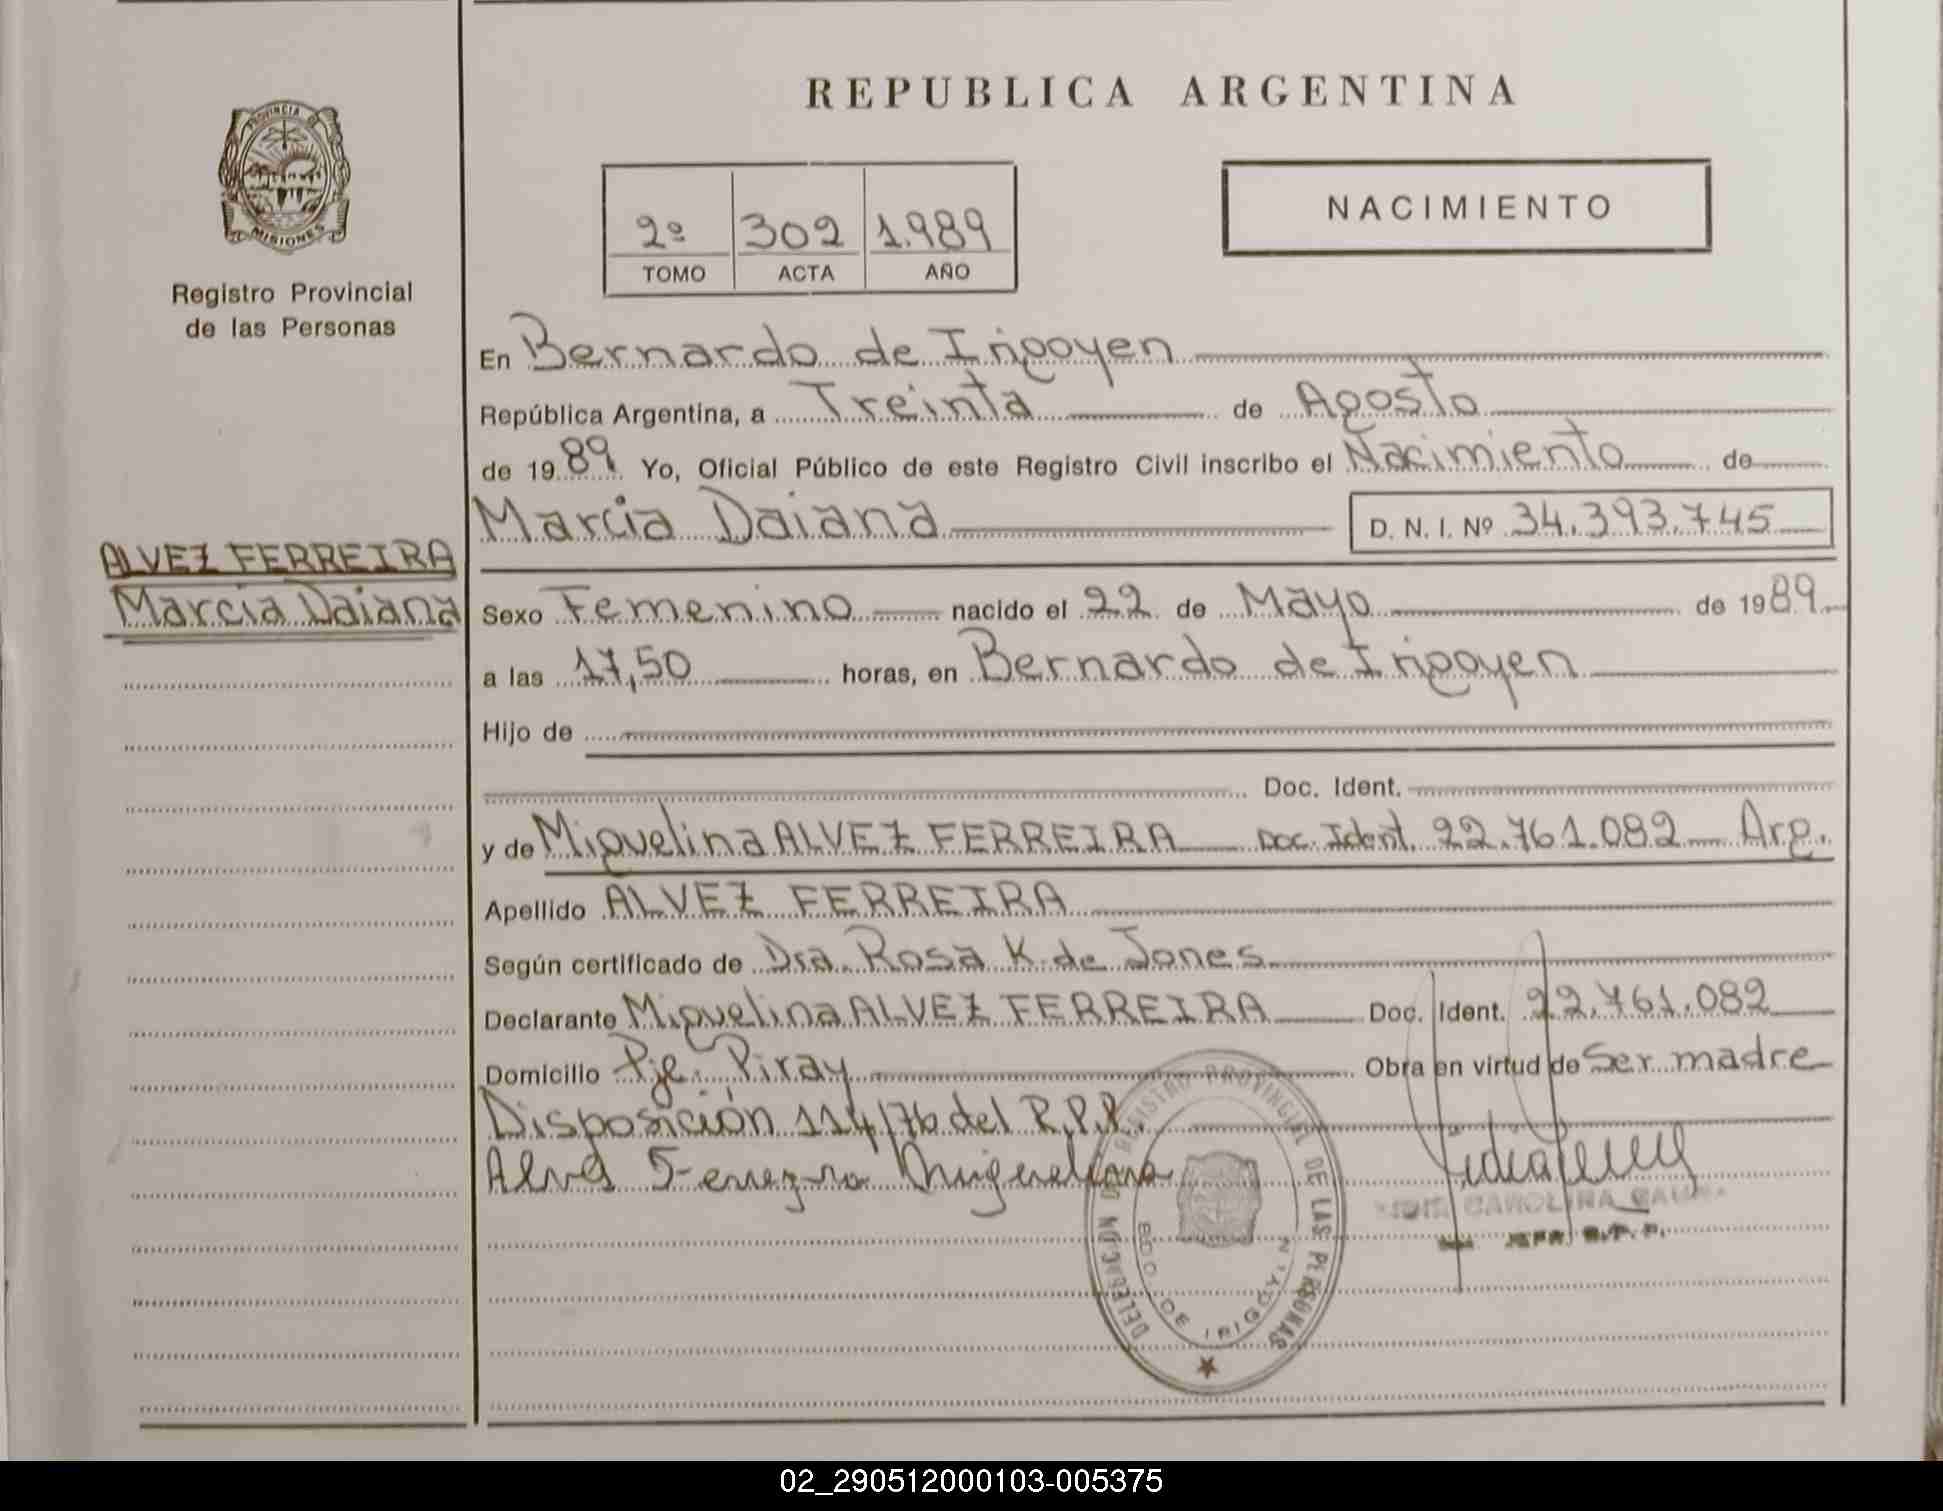 REPUBLICA ARGENTINA
PROVINCIA DE
MISIONES
Registro Provincial
de las Personas
2º 302 1.989
TOMO ACTA AÑO
NACIMIENTO
En Bernardo de Irigoyen
República Argentina, a Treinta de Agosto
de 1989 Yo, Oficial Público de este Registro Civil inscribo el Nacimiento de
Marcia Daiana D. N. I. Nº 34.393.745
ALVEZ FERREIRA
Marcia Daiana
Sexo Femenino nacido el 22 de Mayo de 1989
a las 17,50 horas, en Bernardo de Irigoyen
Hijo de
Doc. Ident.
y de Miguelina ALVEZ FERREIRA Doc. Ident. 22.761.082 Arg.
Apellido ALVEZ FERREIRA
Según certificado de Dra. Rosa K. de Jones
Declarante Miguelina ALVEZ FERREIRA Doc. Ident. 22.761.082
Domicilio Pje. Piray Obra en virtud de Ser madre
Disposición 114/76 del R.P.P.
Alves Ferreyra Miguelina
CAROLINA
JEFA R.P.P.
DELEGACION REGISTRO PROVINCIAL DE LAS PERSONAS
BDO. DE IRIGOYEN
02_290512000103-005375